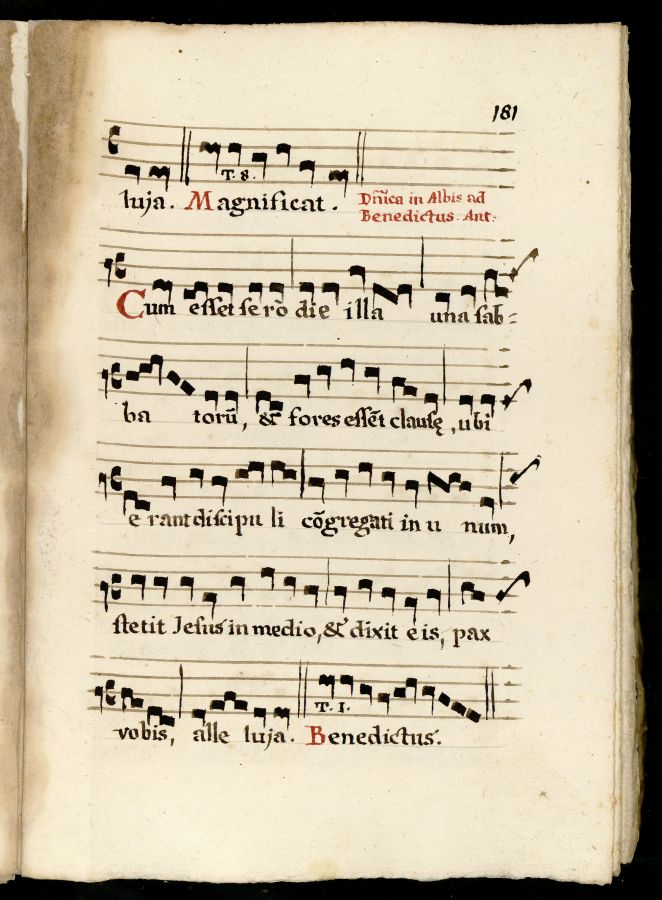 181
T. 8.
luja. Magnificat.
Dñica in Albis ad
Benedictus. Ant.
Cum esſet ſe rõ die illa una ſab=
ba torũ, & fores eſſẽt clauſę, ubi
e rant diſcipu li cõgregati in u num,
ſtetit Jeſus in medio, & dixit eis, pax
T. 1.
vobis, alle luja. Benedictus.